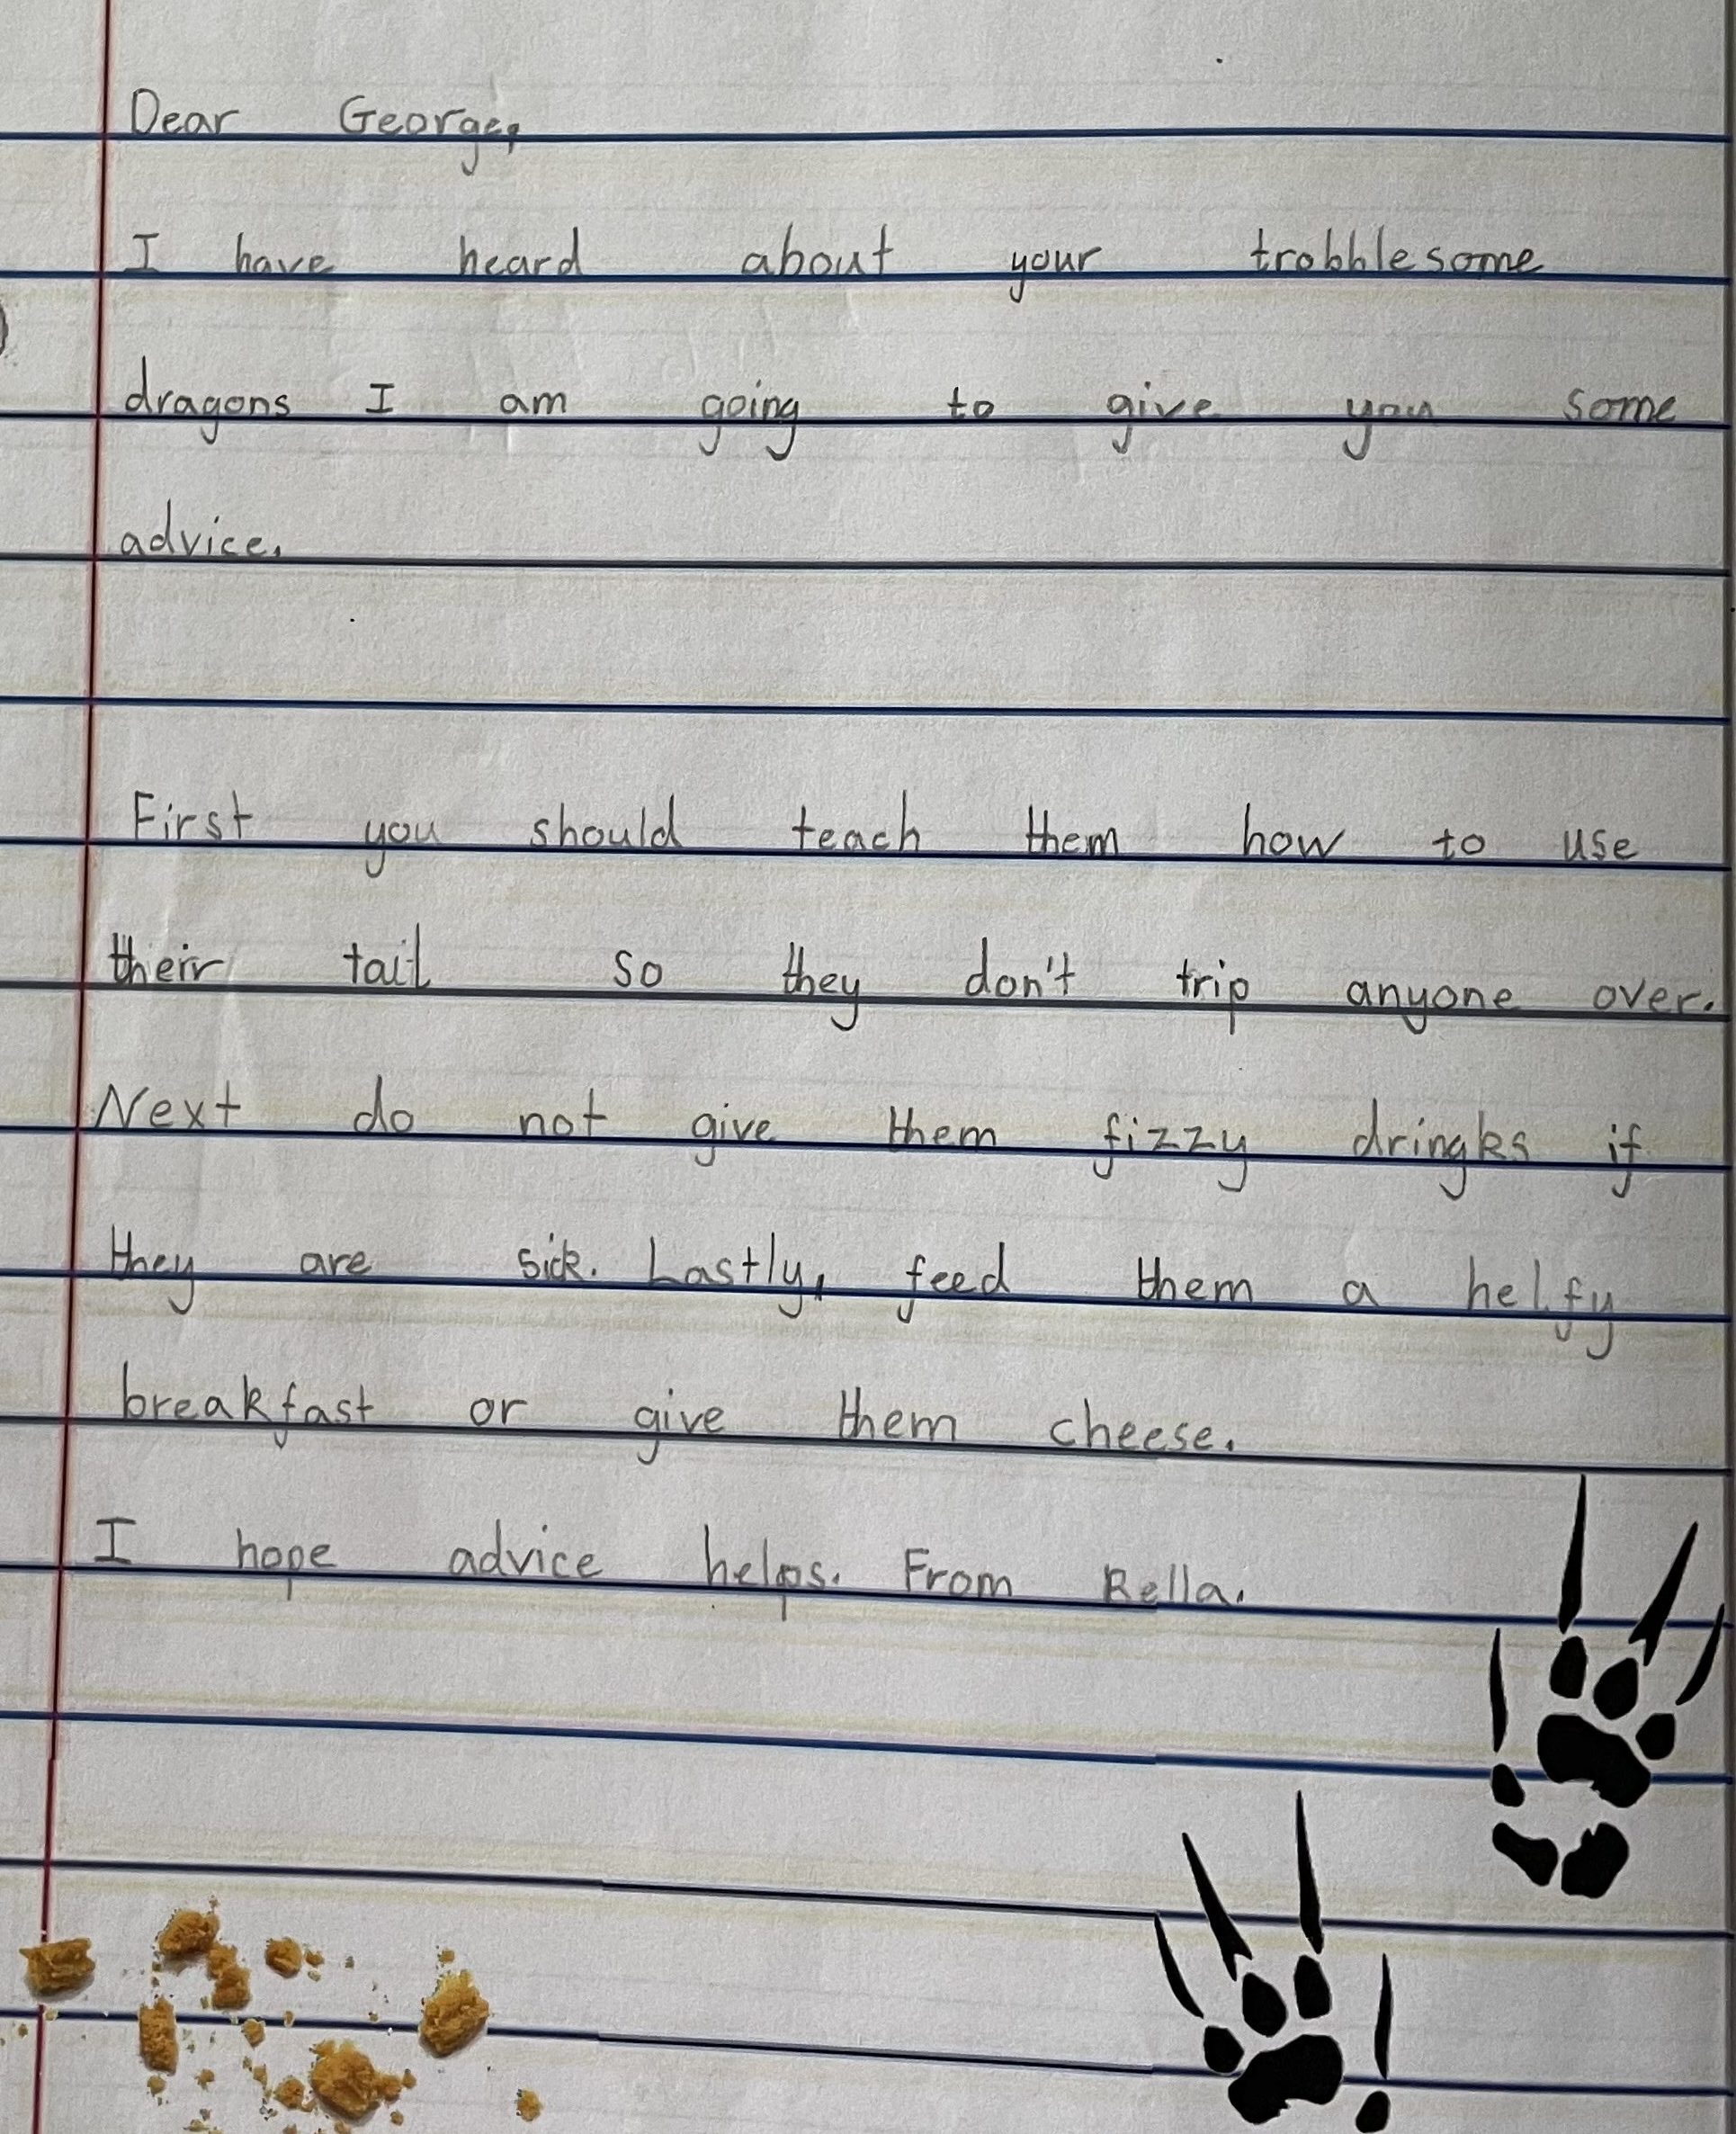 Dear George,
I have heard about your trobblesome
dragons I am going to give you some
advice.
First you should teach them how to use
their tail so they don't trip anyone over.
Next do not give them fizzy dringks if
they are sick. Lastly, feed them a helfy
breakfast or give them cheese.
I hope advice helps. From Bella.